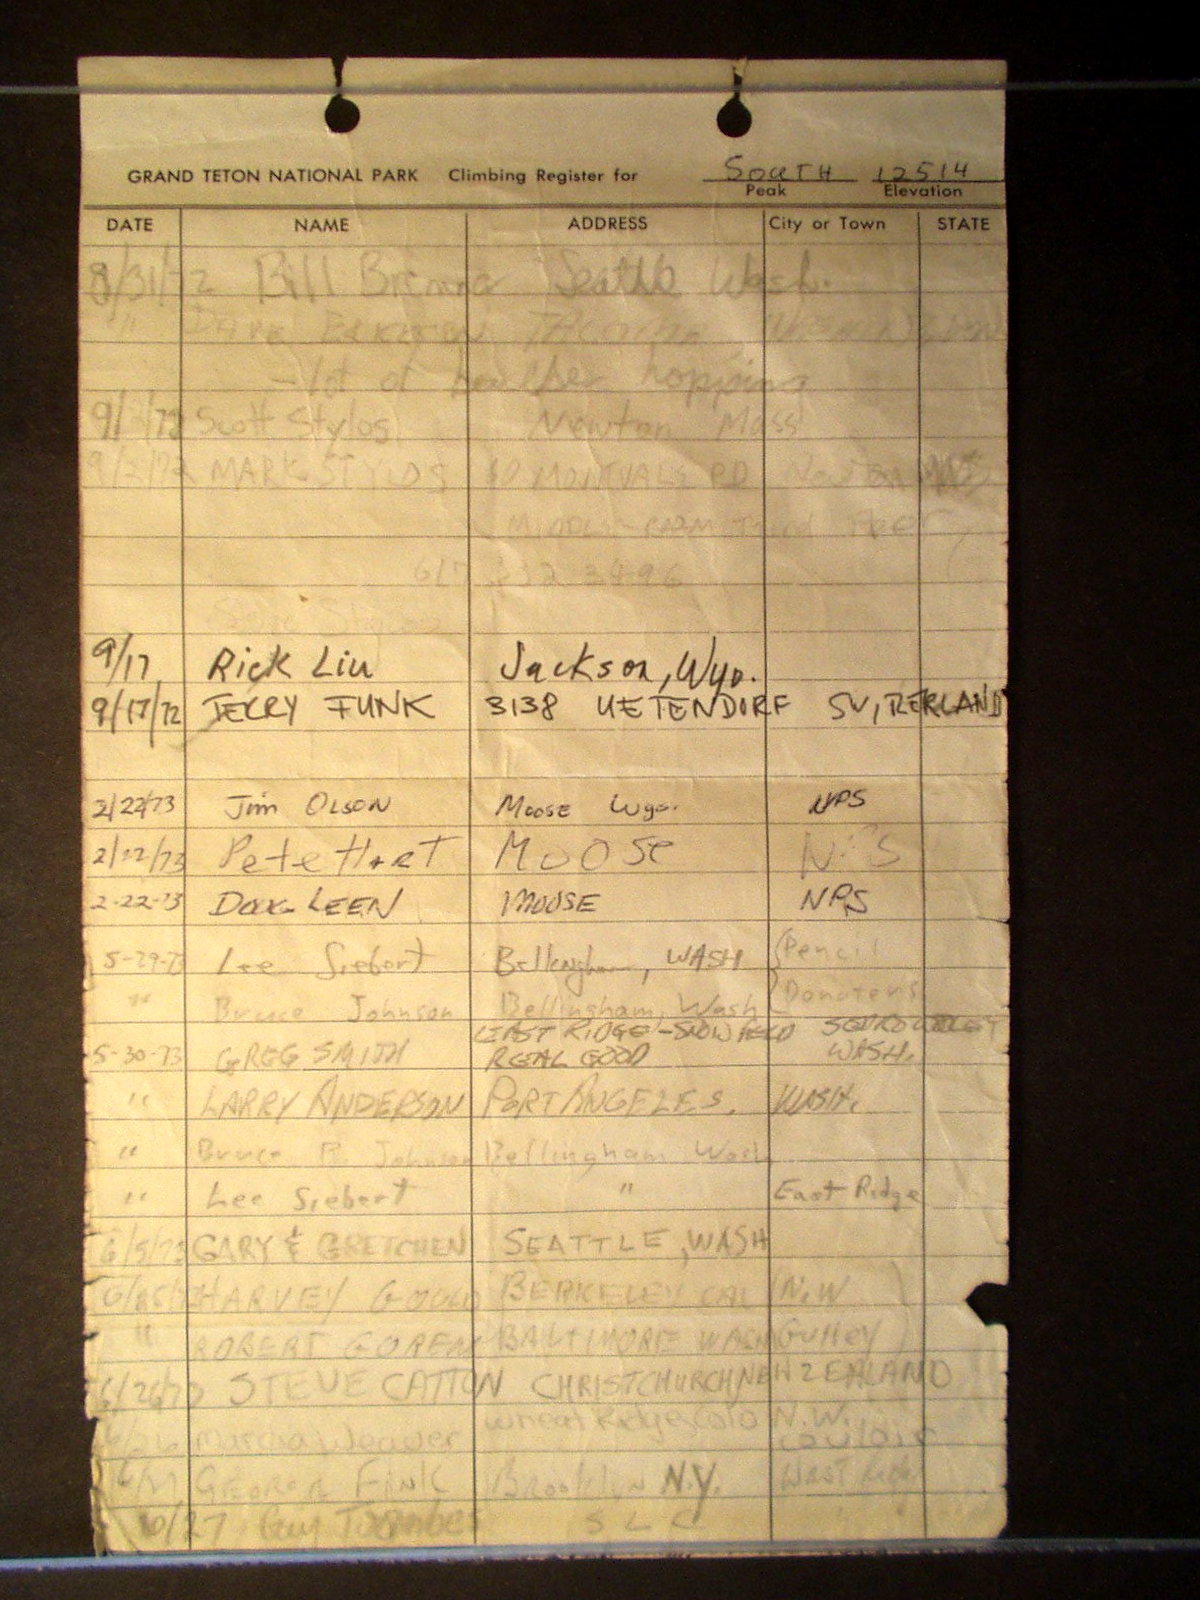 GRAND TETON NATIONAL PARK Climbing Register for SOUTH 12514
Peak Elevation
DATE NAME ADDRESS City or Town STATE
8/31/72 Bill Seattle Wash.
" Dave
- lot of boulder hopping
9/ /72 Scott Stylos Newton Mass
9/2/72 MARK STYLOS 60 MONTVALE RD Newton
Third
617 332 3896
9/17 Rick Liu Jackson, Wyo.
9/17/72 JERRY FUNK 3138 UETENDORF
2/22/73 Jim OLSON Moose Wyo. NPS
2/22/73 Pete Hart MOOSE NPS
2-22-73 Doug LEEN MOOSE NPS
5-29-73 Lee Siebert Bellingham, WASH (Pencil
" Bruce Johnson Bellingham, Wash Donoters
EAST RIDGE - SNOWFIELD SEDRO WOOLLEY
5-30-73 GREG SMITH REAL GOOD WASH.
" LARRY ANDERSON PORT ANGELES, WASH.
" Bruce R. Johnson Bellingham Wash.
" Lee Siebert " East Ridge
6/5/73 GARY & GRETCHEN SEATTLE, WASH
HARVEY GOULD BERKELEY CAL N.W
" ROBERT BALTIMORE Gulley)
6/26/73 STEVE CATTON CHRISTCHURCH NEW ZEALAND
Wheat Ridge Colo N.W.
6/26 Marcia Weaver couloir
George Fink Brooklyn N.Y. West Ridge
6/27 Guy SLC